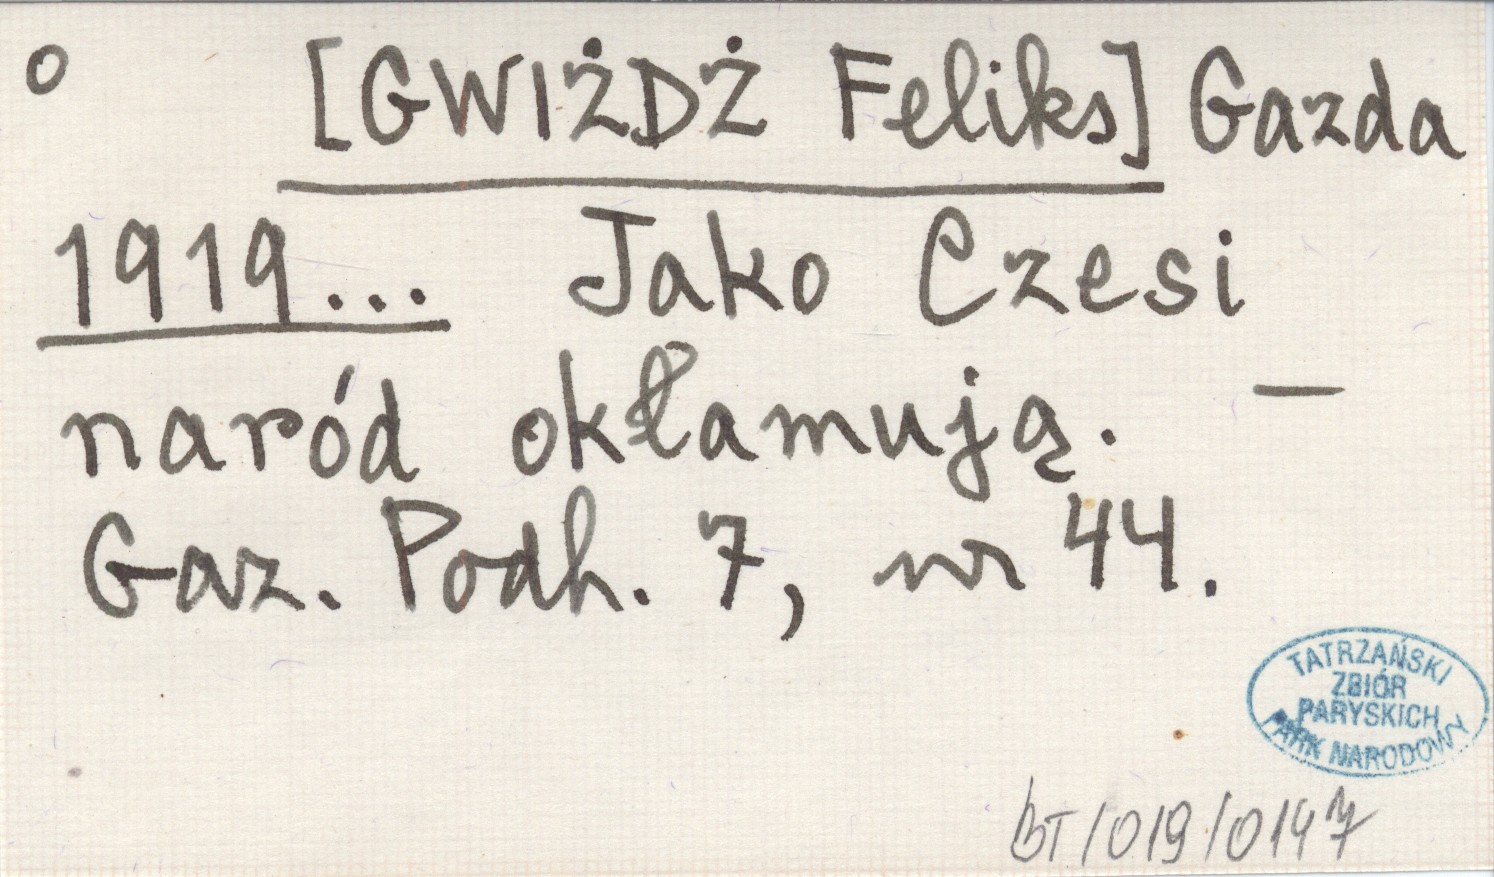 o [GWIŻDŻ Feliks] Gazda
1919... Jako Czesi
naród okłamują. —
Gaz. Podh. 7, nr 44.
TATRZAŃSKI
ZBIÓR
PARYSKICH
PARK NARODOWY
BT/019/0147